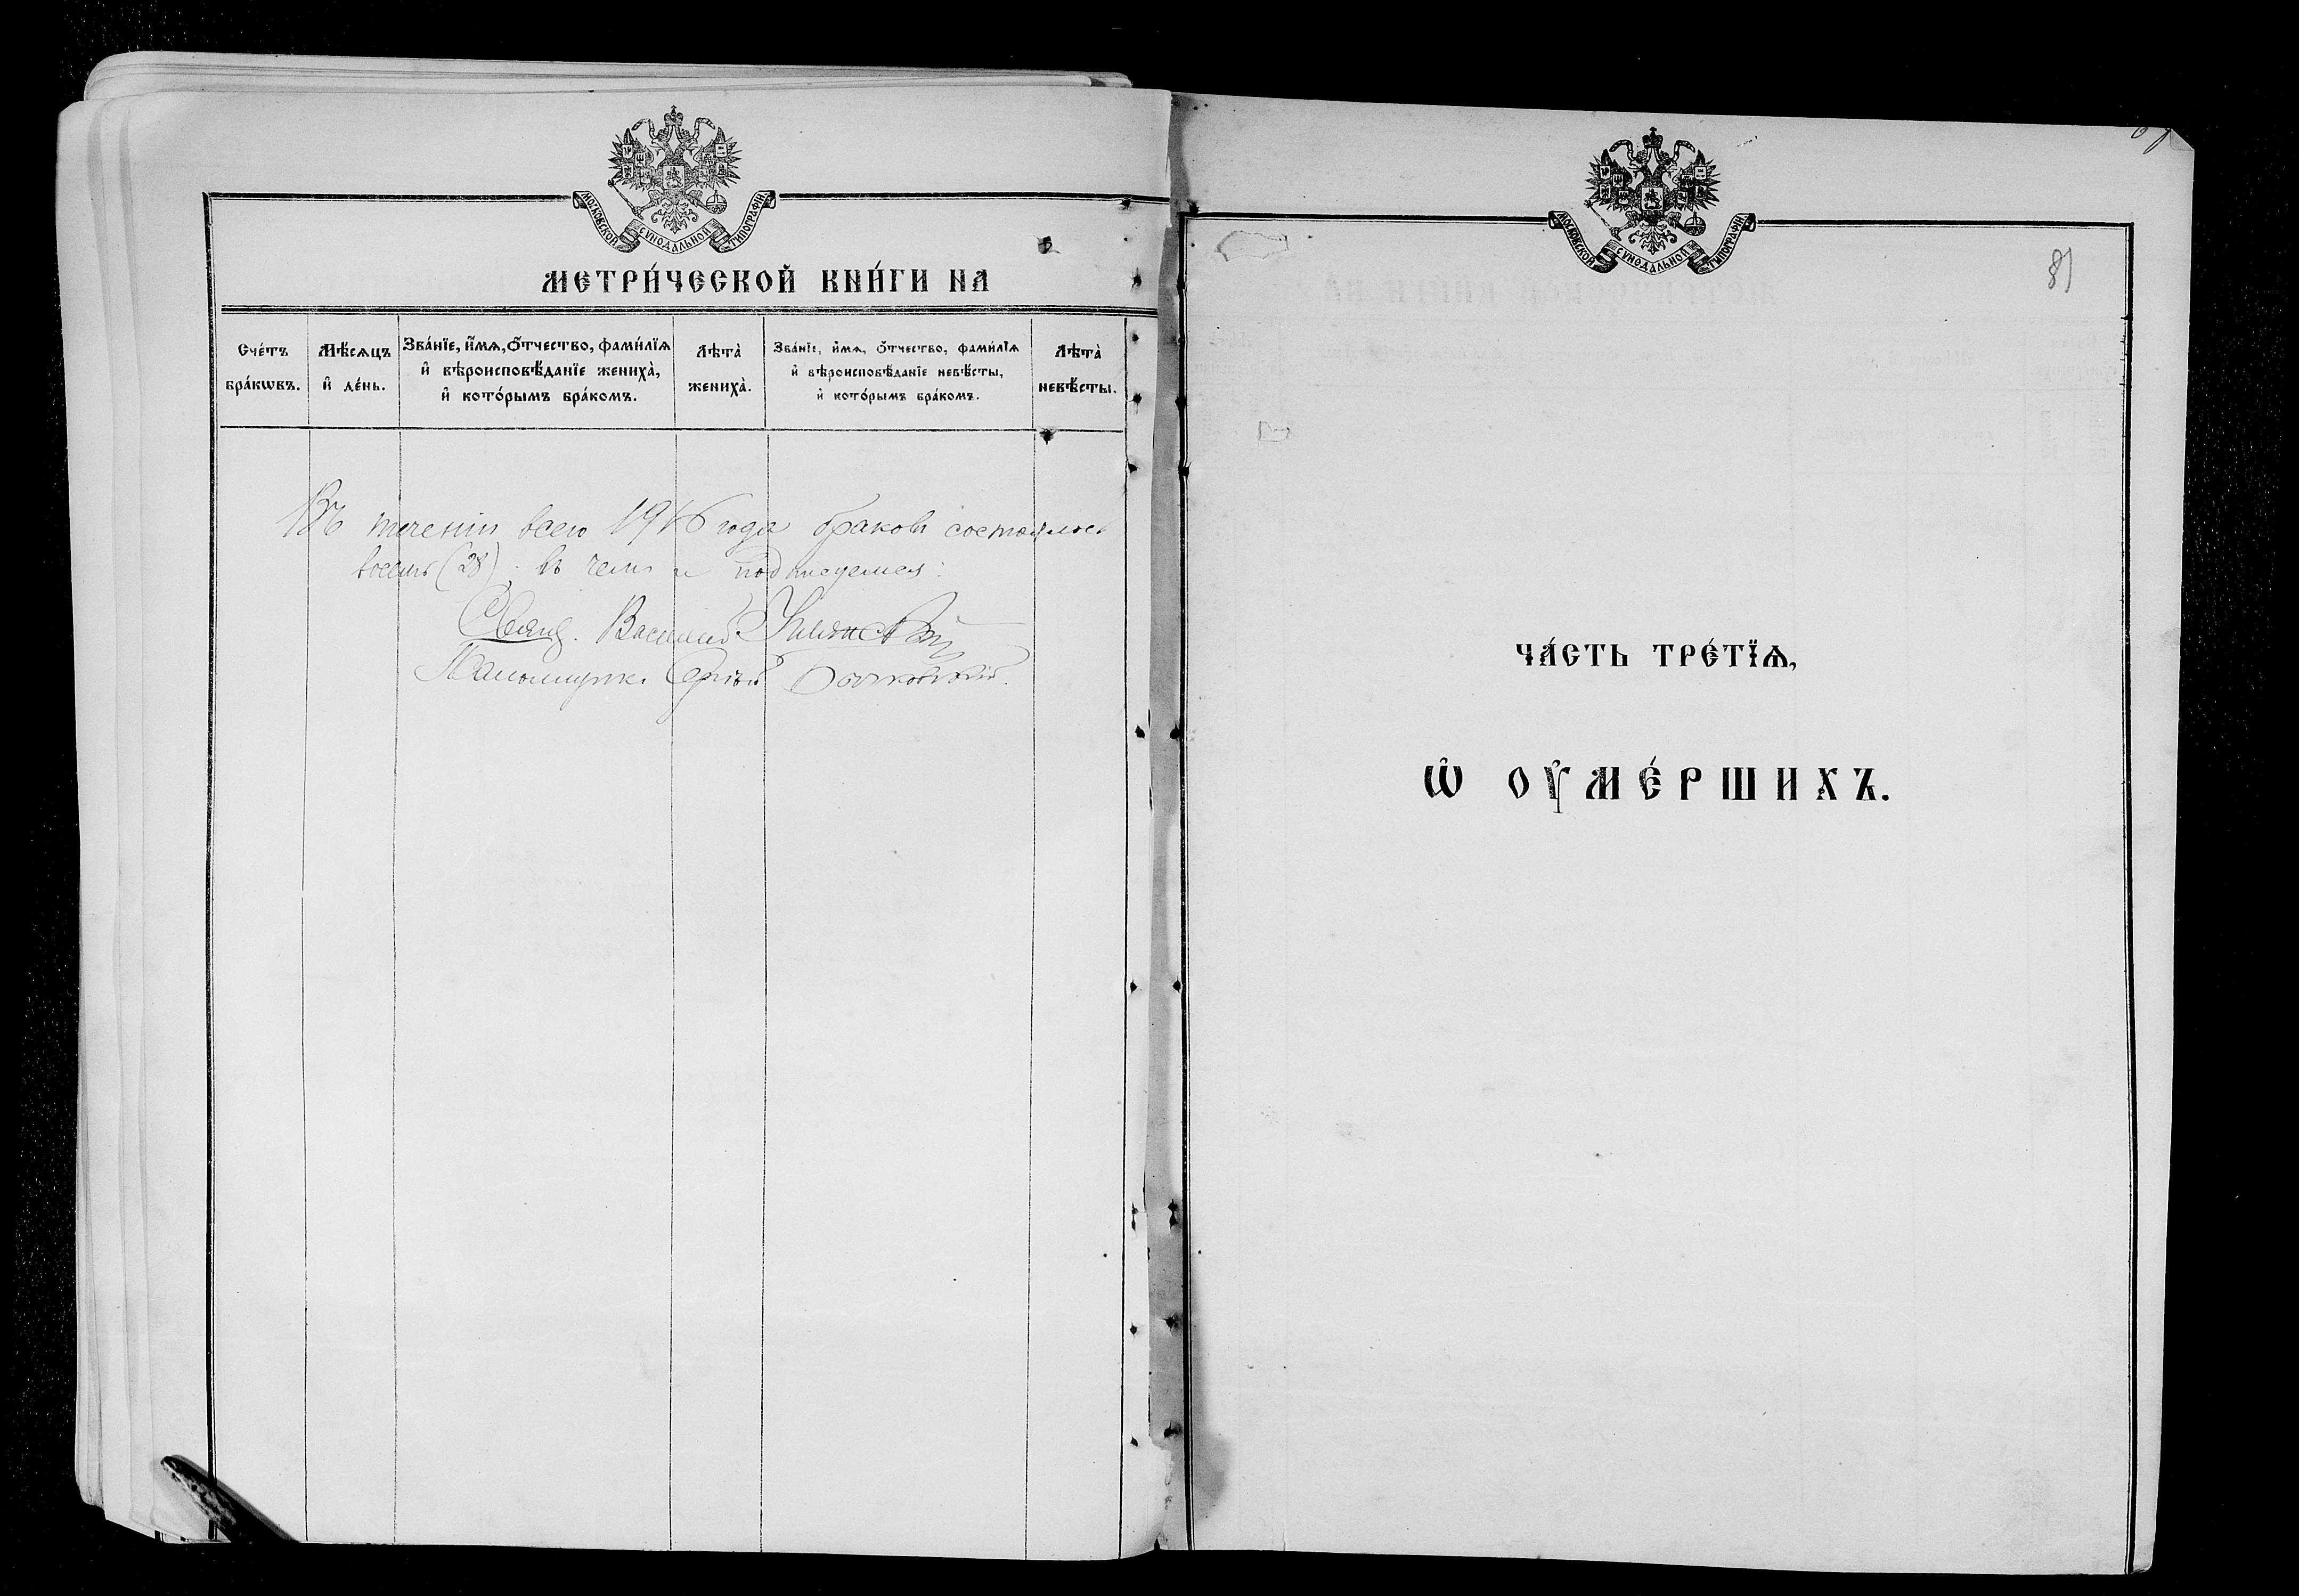 МОСКОВСКОЙ СѴНОДАЛЬНОЙ ТИПОГРАФІИ.
МЕТРИ́ЧЕСКОЙ КНИ́ГИ НА
Сче́тъ бра́кѡвъ.
Мѣ́сѧцъ и҆ де́нь.
Зва́нїе, и҆́мѧ, ѻ҆́тчество, фами́лїѧ и҆ вѣроисповѣ́данїе жениха̀, и҆ кото́рымъ бра́комъ.
Лѣта̀ жениха̀.
Зва́нїе, и҆́мѧ, ѻ҆́тчество, фами́лїѧ и҆ вѣроисповѣ́данїе невѣ́сты, и҆ кото́рымъ бра́комъ.
Лѣта̀ невѣ́сты.
Въ теченіи всего 1916 года браковъ состоялось
восемь (28). въ чемъ и подписуемся:
Свящ. Василій
Псаломщикъ Сергѣй
МОСКОВСКОЙ СѴНОДАЛЬНОЙ ТИПОГРАФІИ.
81
ЧА́СТЬ ТРЕ́ТЇѦ,
Ѡ҆ ОУ҆МЕ́РШИХЪ.